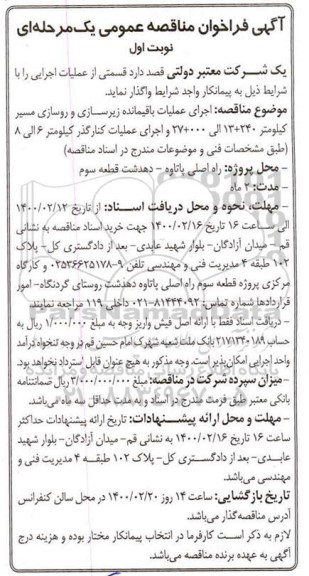 آگهی فراخوان مناقصه عمومی یک‌مرحله‌ای
نوبت اول
یک شرکت معتبر دولتی قصد دارد قسمتی از عملیات اجرایی را با
شرایط ذیل به پیمانکار واجد شرایط واگذار نماید.
موضوع مناقصه: اجرای عملیات باقیمانده زیرسازی و روسازی مسیر
کیلومتر ۲۴۰+۱۳ الی ۰۰۰+۲۷ و اجرای عملیات کنارگذر کیلومتر ۶ الی ۸
(طبق مشخصات فنی و موضوعات مندرج در اسناد مناقصه)
– محل پروژه: راه اصلی پاتاوه – دهدشت قطعه سوم
– مدت: ۲ ماه
– مهلت، نحوه و محل دریافت اسناد: از تاریخ ۱۴۰۰/۰۲/۱۲
الی ساعت ۱۶ تاریخ ۱۴۰۰/۰۲/۱۶ جهت خرید اسناد مناقصه به نشانی
قم– میدان آزادگان– بلوار شهید عابدی– بعد از دادگستری کل– پلاک
۱۰۲ طبقه ۴ مدیریت فنی و مهندسی تلفن ۹–۰۲۵۳۶۶۲۵۱۷۸ و کارگاه
مرکزی پروژه قطعه سوم راه اصلی پاتاوه دهدشت روستای گردنگاه– امور
قراردادها شماره تماس: ۸۱۴۴۴۰۹۲–۰۲۱ داخلی ۱۱۹ مراجعه نمایند.
– دریافت اسناد فقط با ارائه اصل فیش واریز وجه به مبلغ ۱/۰۰۰/۰۰۰ ریال به
حساب ۲۱۷۱۳۴۰۱۸۹ بانک ملت شعبه شهرک امام حسین قم در وجه تنخواه درآمد
واحد اجرایی امکان‌پذیر است. وجه مذکور به هیچ عنوان قابل استرداد نخواهد بود.
– میزان سپرده شرکت در مناقصه: مبلغ ۳/۰۰۰/۰۰۰/۰۰۰ ریال ضمانتنامه
بانکی معتبر طبق فرمت مندرج در اسناد و به مدت حداقل سه ماه می‌باشد.
– مهلت و محل ارائه پیشنهادات: تاریخ ارائه پیشنهادات حداکثر
ساعت ۱۶ تاریخ ۱۴۰۰/۰۲/۱۶ به نشانی قم– میدان آزادگان– بلوار شهید
عابدی– بعد از دادگستری کل– پلاک ۱۰۲ طبقه ۴ مدیریت فنی و
مهندسی می‌باشد.
تاریخ بازگشایی: ساعت ۱۴ روز ۱۴۰۰/۰۲/۲۰ در محل سالن کنفرانس
آدرس مناقصه‌گذار می‌باشد.
لازم به ذکر است کارفرما در انتخاب پیمانکار مختار بوده و هزینه درج
آگهی به عهده برنده مناقصه می‌باشد.